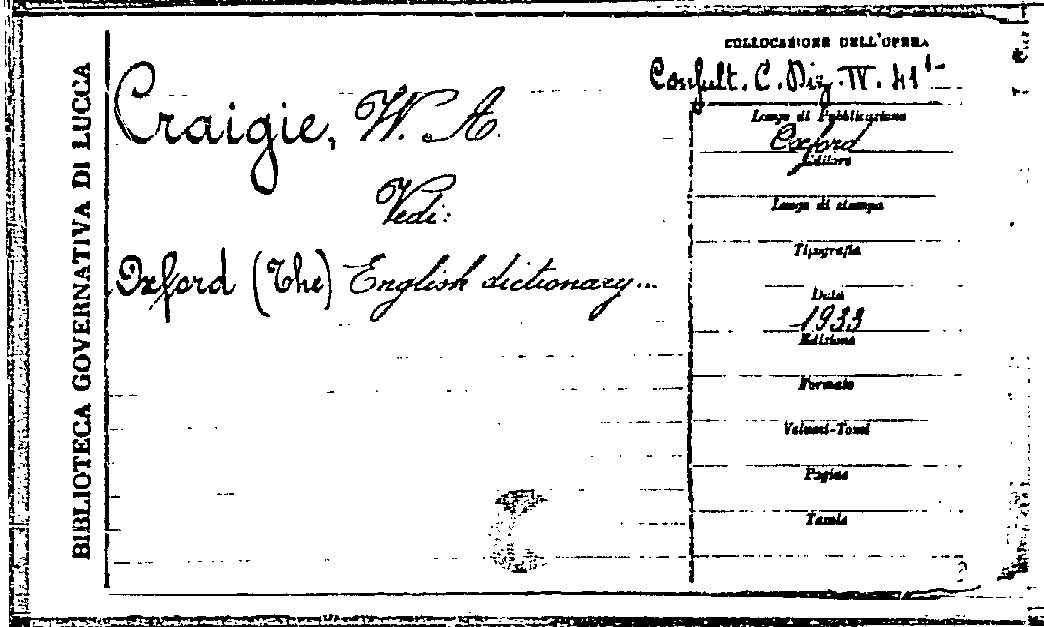 BIBLIOTECA GOVERNATIVA DI LUCCA
Craigie, W. A.
Vedi:
Oxford (The) English dictionary...
COLLOCAZIONE DELL'OPERA
Consult. C. Diz. IV. 41
Luogo di Pubblicazione
Oxford
Editore
Luogo di stampa
Tipografia
Data
1933
Edizione
Formato
Volumi-Tomi
Pagine
Tavole